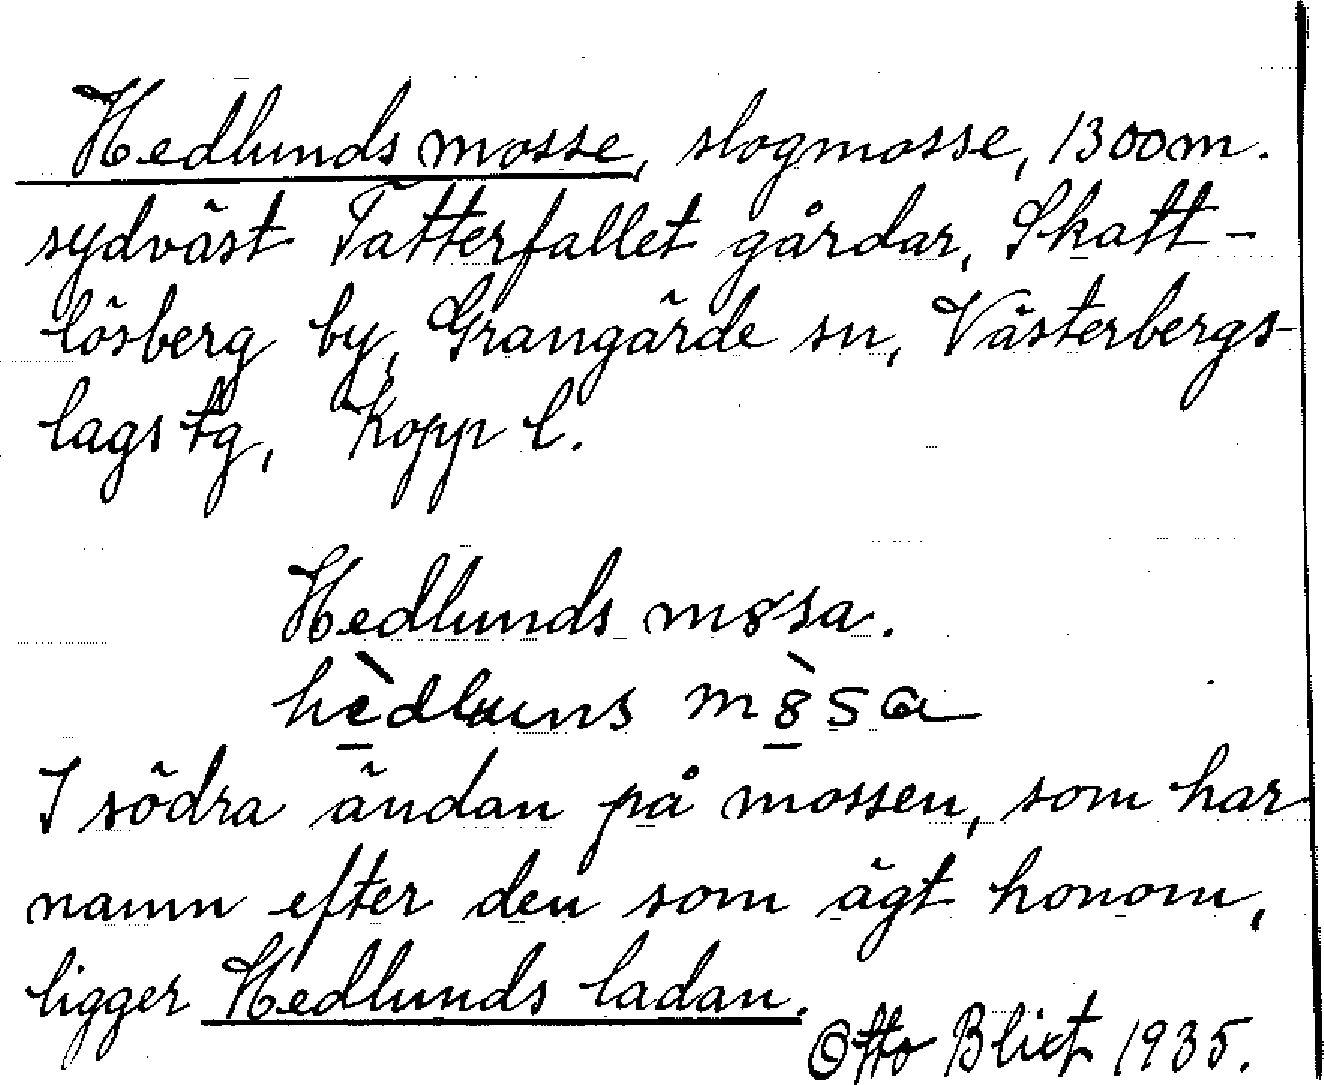 Hedlunds mosse, slogmosse, 1300 m.
sydväst Tatterfallet gårdar, Skatt-
lösberg by, Grangärde sn, Västerbergs-
lags tg, Kopp l.
Hedlunds m8sa.
hèdluns m8̀sa
I södra ändan på mossen, som har
namn efter den som ägt honom,
ligger Hedlunds ladan.
Otto Blixt 1935.